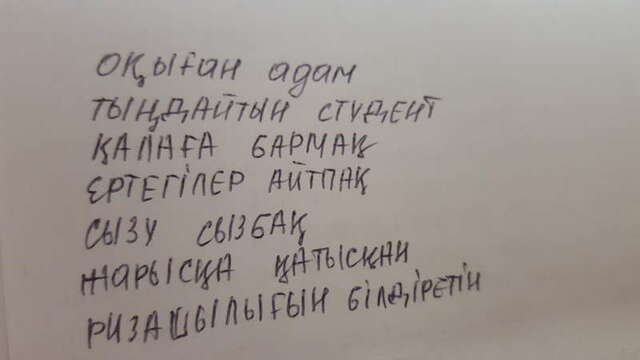 оқыған адам
тыңдайтын студент
қалаға бармақ
ертегілер айтпақ
сызу сызбақ
жарысқа қатысқан
ризашылығын білдіретін